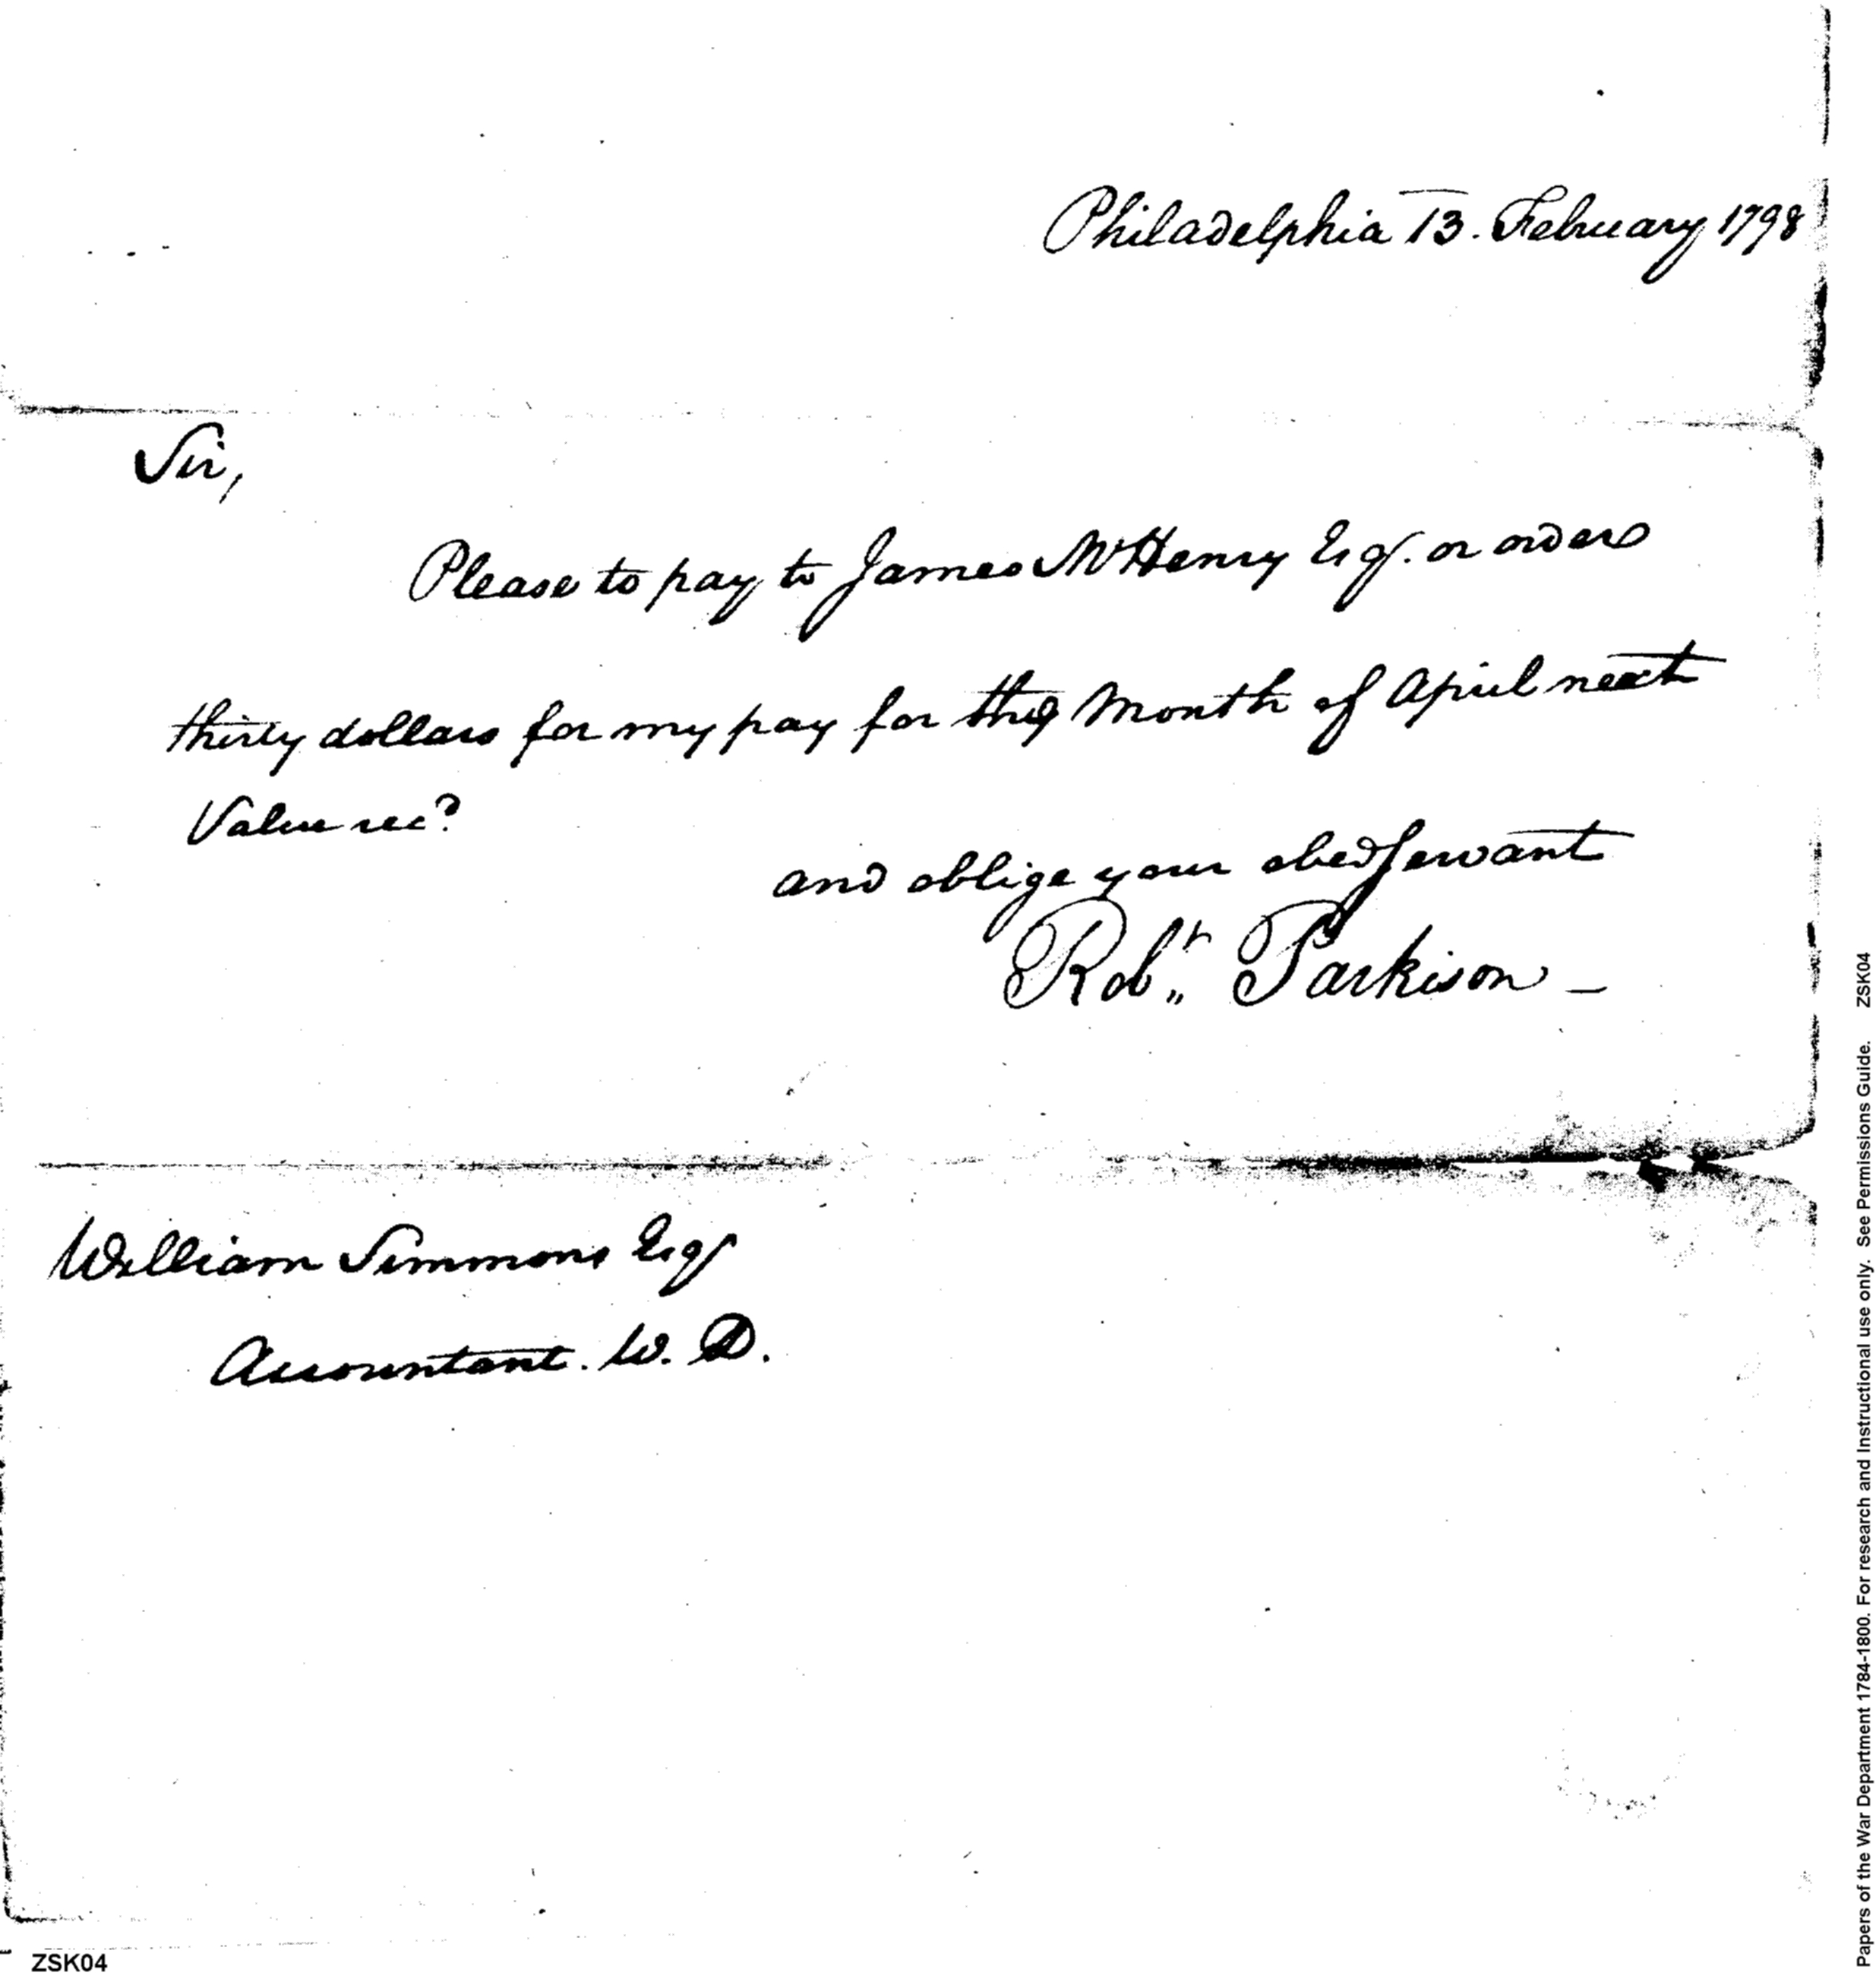 Philadelphia 13. February 1798
Sir,
Please to pay to James McHenry Esqr. or order
thirty dollars for my pay for the Month of April next
Value recd
and oblige your obed Servant
Robt Parkison
William Simmons Esqr
Accountant. W. D.
ZSK04
Papers of the War Department 1784-1800. For research and Instructional use only. See Permissions Guide. ZSK04